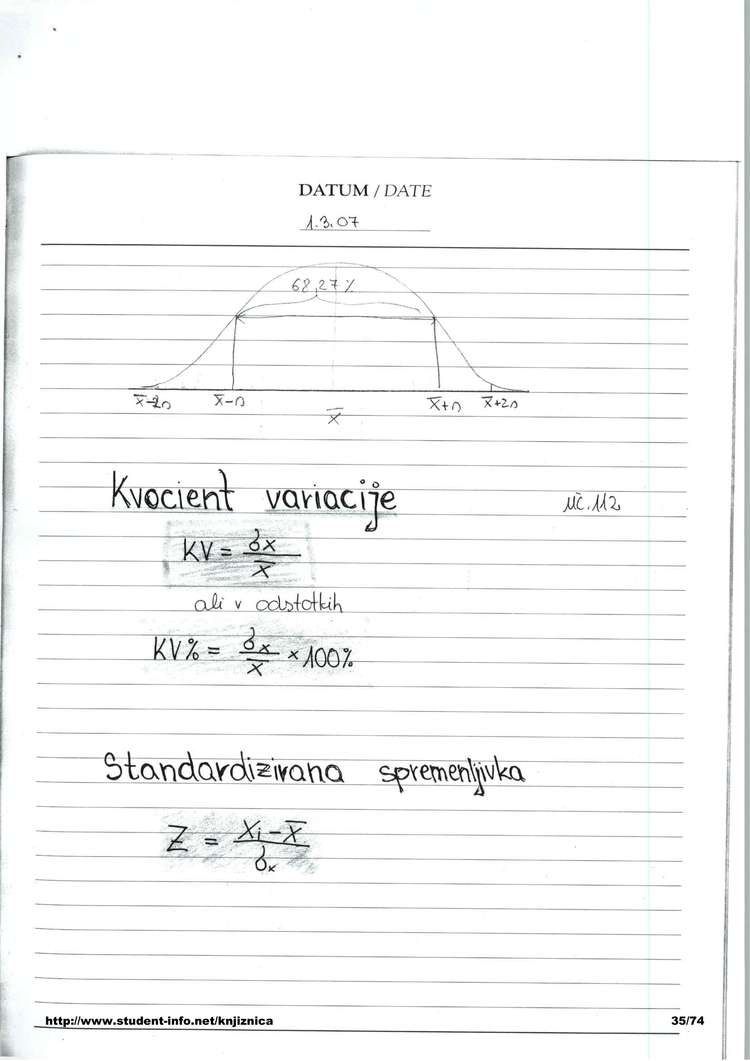 DATUM / DATE
1.3.07
68,27 %
x̅-2s x̅-s x̅ x̅+s x̅+2s
Kvocient variacije uč. 112
KV = σx / x̅
ali v odstotkih
KV% = σx / x̅ × 100%
Standardizirana spremenljivka
Z = xi - x̅ / σx
http://www.student-info.net/knjiznica 35/74